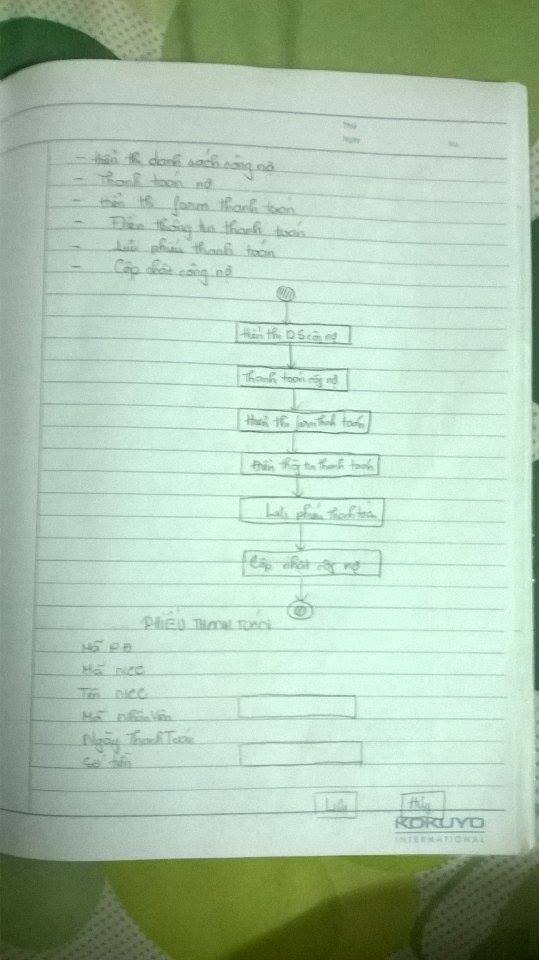 - Hiển thị danh sách công nợ
- Thanh toán nợ
- Hiển thị form thanh toán
- Điền thông tin thanh toán
- Lưu phiếu thanh toán
- Cập nhật công nợ
Hiển thị DS công nợ
Thanh toán công nợ
Hiển thị form thanh toán
Điền thông tin thanh toán
Lưu phiếu thanh toán
Cập nhật công nợ
PHIẾU THANH TOÁN
Mã
Mã NCC
Tên NCC
Mã nhân viên
Ngày Thanh Toán
Số tiền
Lưu Hủy
KOKUYO
INTERNATIONAL